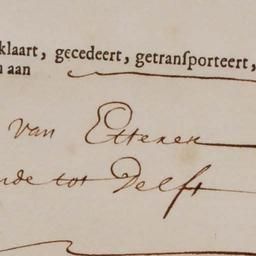 klaart, gecedeert, getransporteert,
n aan
van Etteren
nde tot Delft